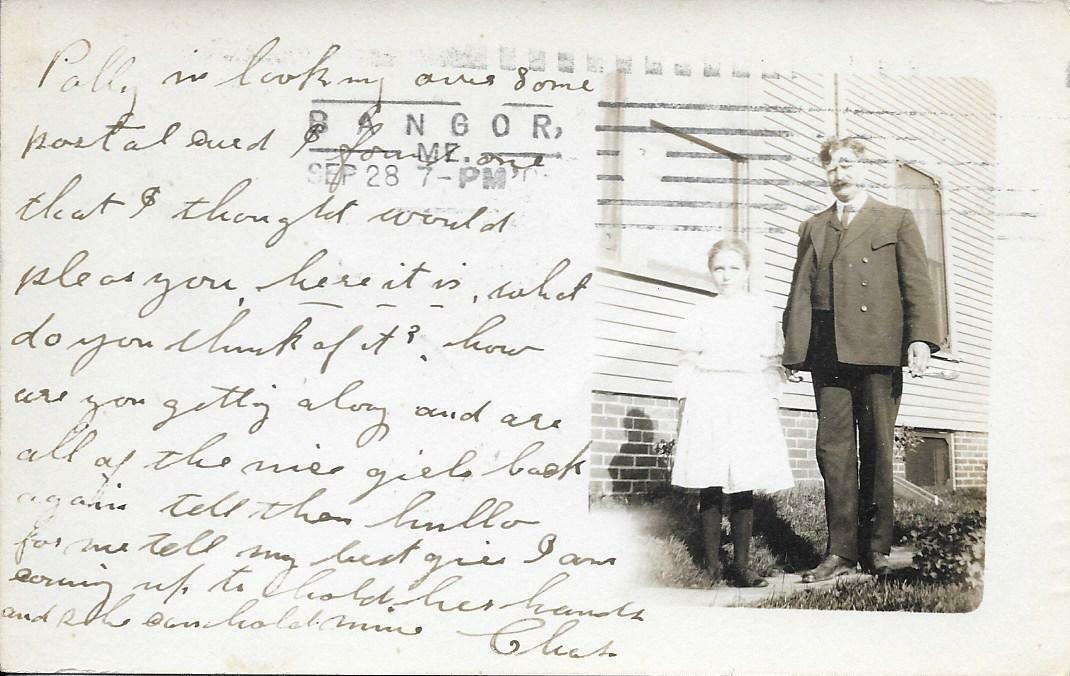 Polly in looking over some
postal card I found one
that I thought would
pleas you, here it is, what
do you think of it? how
are you gettig along and are
all of the nice girls back
again tell them hullo
for me tell my best girl I am
coming up to hold her hands
and she can hold mine Chas.
BANGOR,
ME.
SEP 28 7-PM